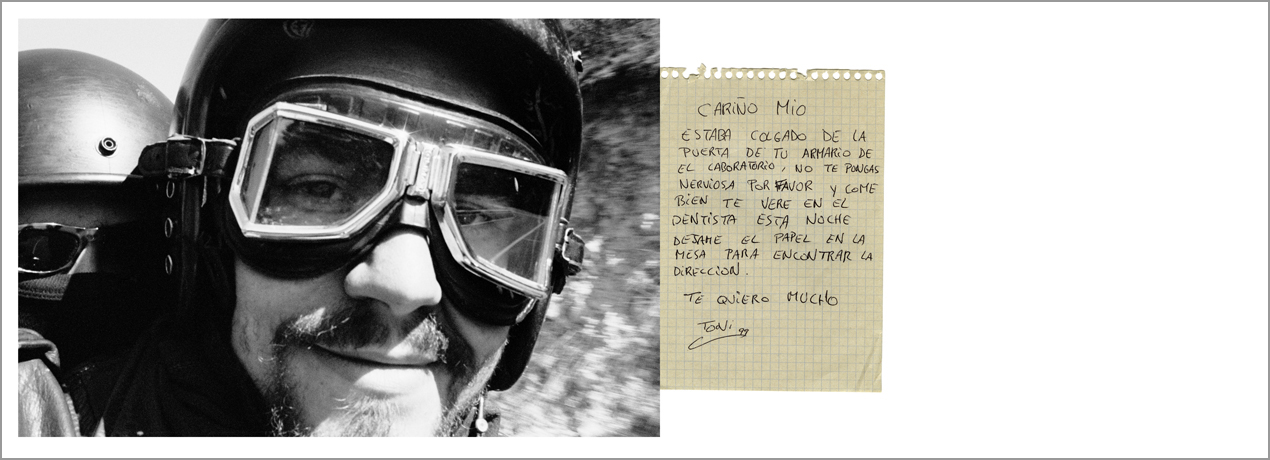 CARIÑO MIO
ESTABA COLGADO DE LA
PUERTA DE TU ARMARIO DE
EL LABORATORIO, NO TE PONGAS
NERVIOSA POR FAVOR Y COME
BIEN TE VERE EN EL
DENTISTA ESTA NOCHE
DEJAME EL PAPEL EN LA
MESA PARA ENCONTRAR LA
DIRECCION.
TE QUIERO MUCHO
TONI 99